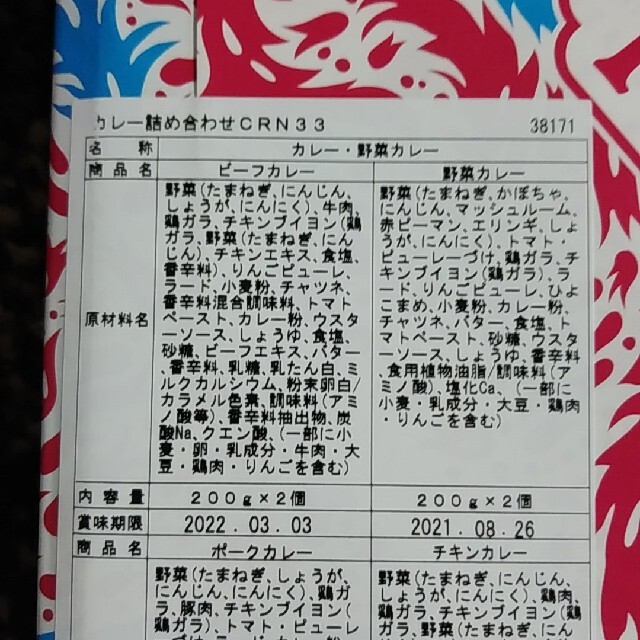 カレー詰め合わせCRN33 38171
名称 カレー・野菜カレー
商品名 ビーフカレー 野菜カレー
原材料名
野菜(たまねぎ、にんじん、
しょうが、にんにく)、牛肉、
鶏ガラ、チキンブイヨン(鶏
ガラ、野菜(たまねぎ、にん
じん)、チキンエキス、食塩、
香辛料)、りんごピューレ、
ラード、小麦粉、チャツネ、
香辛料混合調味料、トマト
ペースト、カレー粉、ウスタ
ーソース、しょうゆ、食塩、
砂糖、ビーフエキス、バター
、香辛料、乳糖、乳たん白、ミ
ルクカルシウム、粉末卵白/
カラメル色素、調味料(アミ
ノ酸等)、香辛料抽出物、炭
酸Na、クエン酸、(一部に小
麦・卵・乳成分・牛肉・大
豆・鶏肉・りんごを含む)
野菜(たまねぎ、かぼちゃ、
にんじん、マッシュルーム、
赤ピーマン、エリンギ、しょ
うが、にんにく)、トマト・
ピューレーづけ、鶏ガラ、チ
キンブイヨン(鶏ガラ)、ラ
ード、りんごピューレ、ひよ
こまめ、小麦粉、カレー粉、
チャツネ、バター、食塩、ト
マトペースト、砂糖、ウスタ
ーソース、しょうゆ、香辛料
、食用植物油脂/調味料(ア
ミノ酸)、塩化Ca、(一部に
小麦・乳成分・大豆・鶏肉
・りんごを含む)
内容量 200g×2個 200g×2個
賞味期限 2022.03.03 2021.08.26
商品名 ポークカレー チキンカレー
野菜(たまねぎ、しょうが、
にんじん、にんにく)、鶏ガ
ラ、豚肉、チキンブイヨン(
鶏ガラ)、トマト・ピューレ
野菜(たまねぎ、にんじん、
しょうが、にんにく)、鶏肉、
鶏ガラ、チキンブイヨン(
鶏ガラ、野菜(たまねぎ、にん